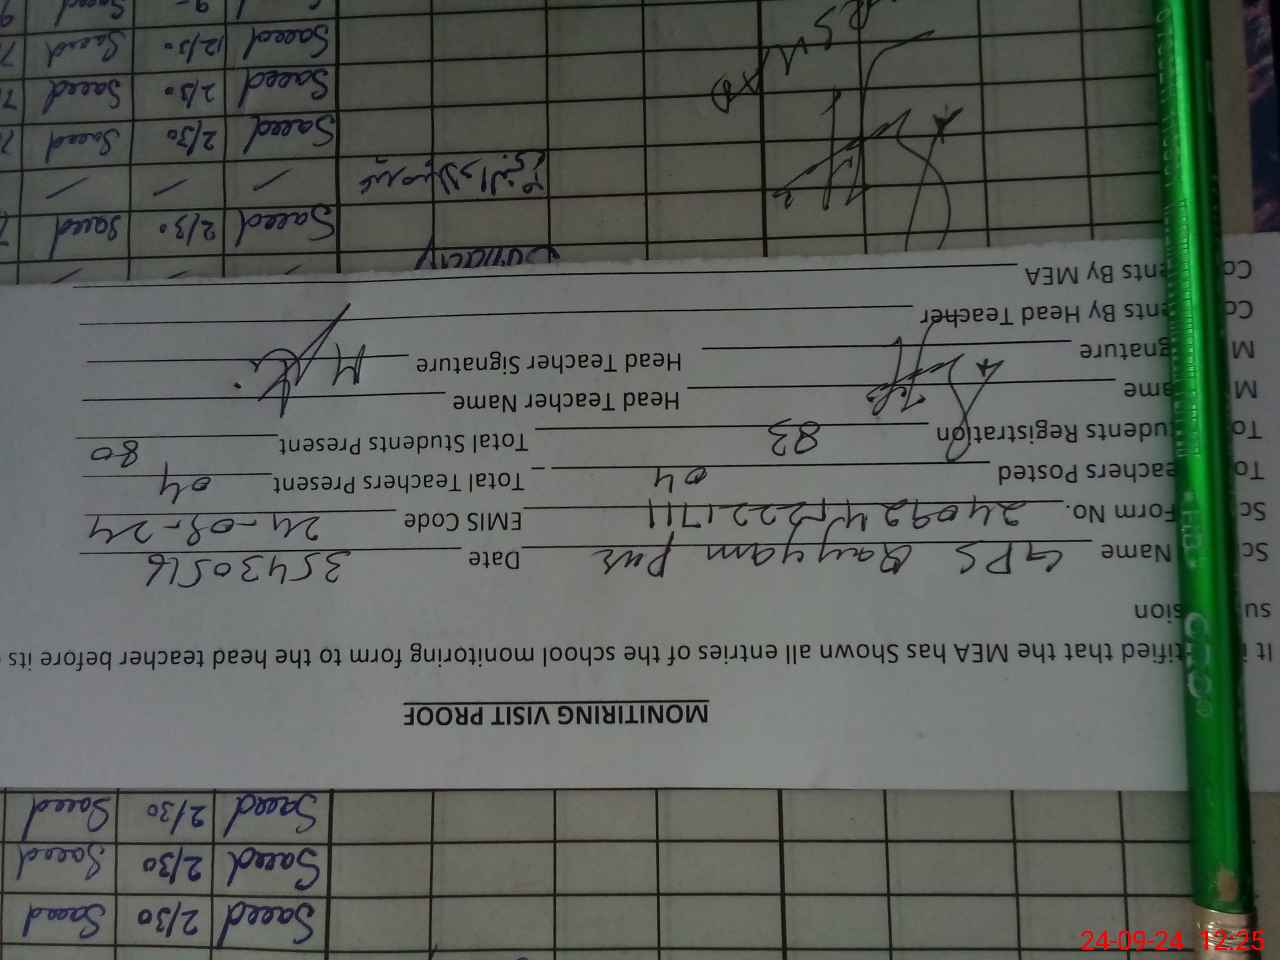 Saeed 2/30 Saeed
Saeed 2/30 Saeed
Saeed 2/30 Saeed
MONITIRING VISIT PROOF
It i tified that the MEA has Shown all entries of the school monitoring form to the head teacher before its
su sion
Sc Name GPS Qayyam Pur Date 35430516
Sc Form No. EMIS Code 24-09-24
To eachers Posted 04 Total Teachers Present 04
To tudents Registration 83 Total Students Present 80
M ame Head Teacher Name
M gnature Head Teacher Signature
Co ents By Head Teacher
Co ents By MEA
Saeed 2/30 Saeed
Saeed 2/30 Saeed
Saeed 2/30 Saeed
Saeed 12/30 Saeed
24-09-24 12:25